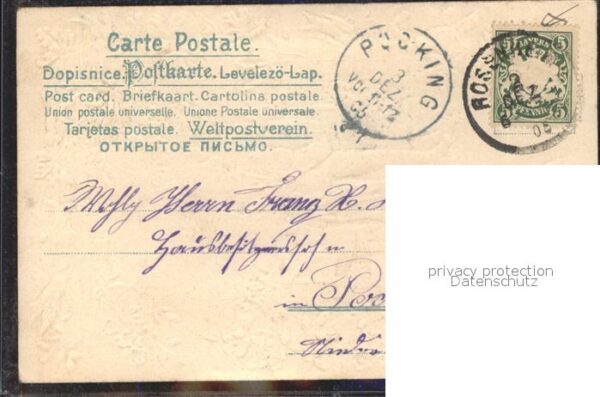 Carte Postale.
Dopisnice. Postkarte. Levelező-Lap.
Post card. Briefkaart. Cartolina postale.
Union postale universelle. Unione Postale universale.
Tarjetas postale. Weltpostverein.
ОТКРЫТОЕ ПИСЬМО.
POCKING
3
DEZ.
Vor. 11-12
05
BAYERN
5 5
PFENNIG
3
DEZ
05
Wohlg Herrn Franz X.
Hausbesitzerssohn
in Poc
Nieder
privacy protection
Datenschutz